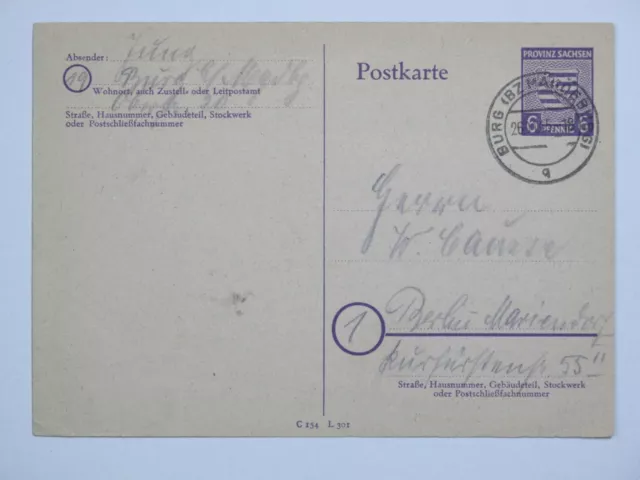 Absender:
19
Wohnort, auch Zustell- oder Leitpostamt
Straße, Hausnummer, Gebäudeteil, Stockwerk
oder Postschließfachnummer
Postkarte
PROVINZ SACHSEN
6 PFENNIG 6
BURG (BZ MAGDEBURG)
q
Herrn
W.
1
Berlin Mariendorf
Kurfürstenstr. 55 II
Straße, Hausnummer, Gebäudeteil, Stockwerk
oder Postschließfachnummer
C 154 L 301